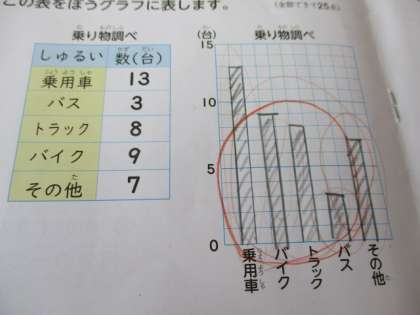 この表をぼうグラフに表します。
(全部できて25点)
乗り物調べ
しゅるい 数(台)
乗用車 13
バス 3
トラック 8
バイク 9
その他 7
(台) 乗り物調べ
15
10
5
0
乗用車
バイク
トラック
バス
その他